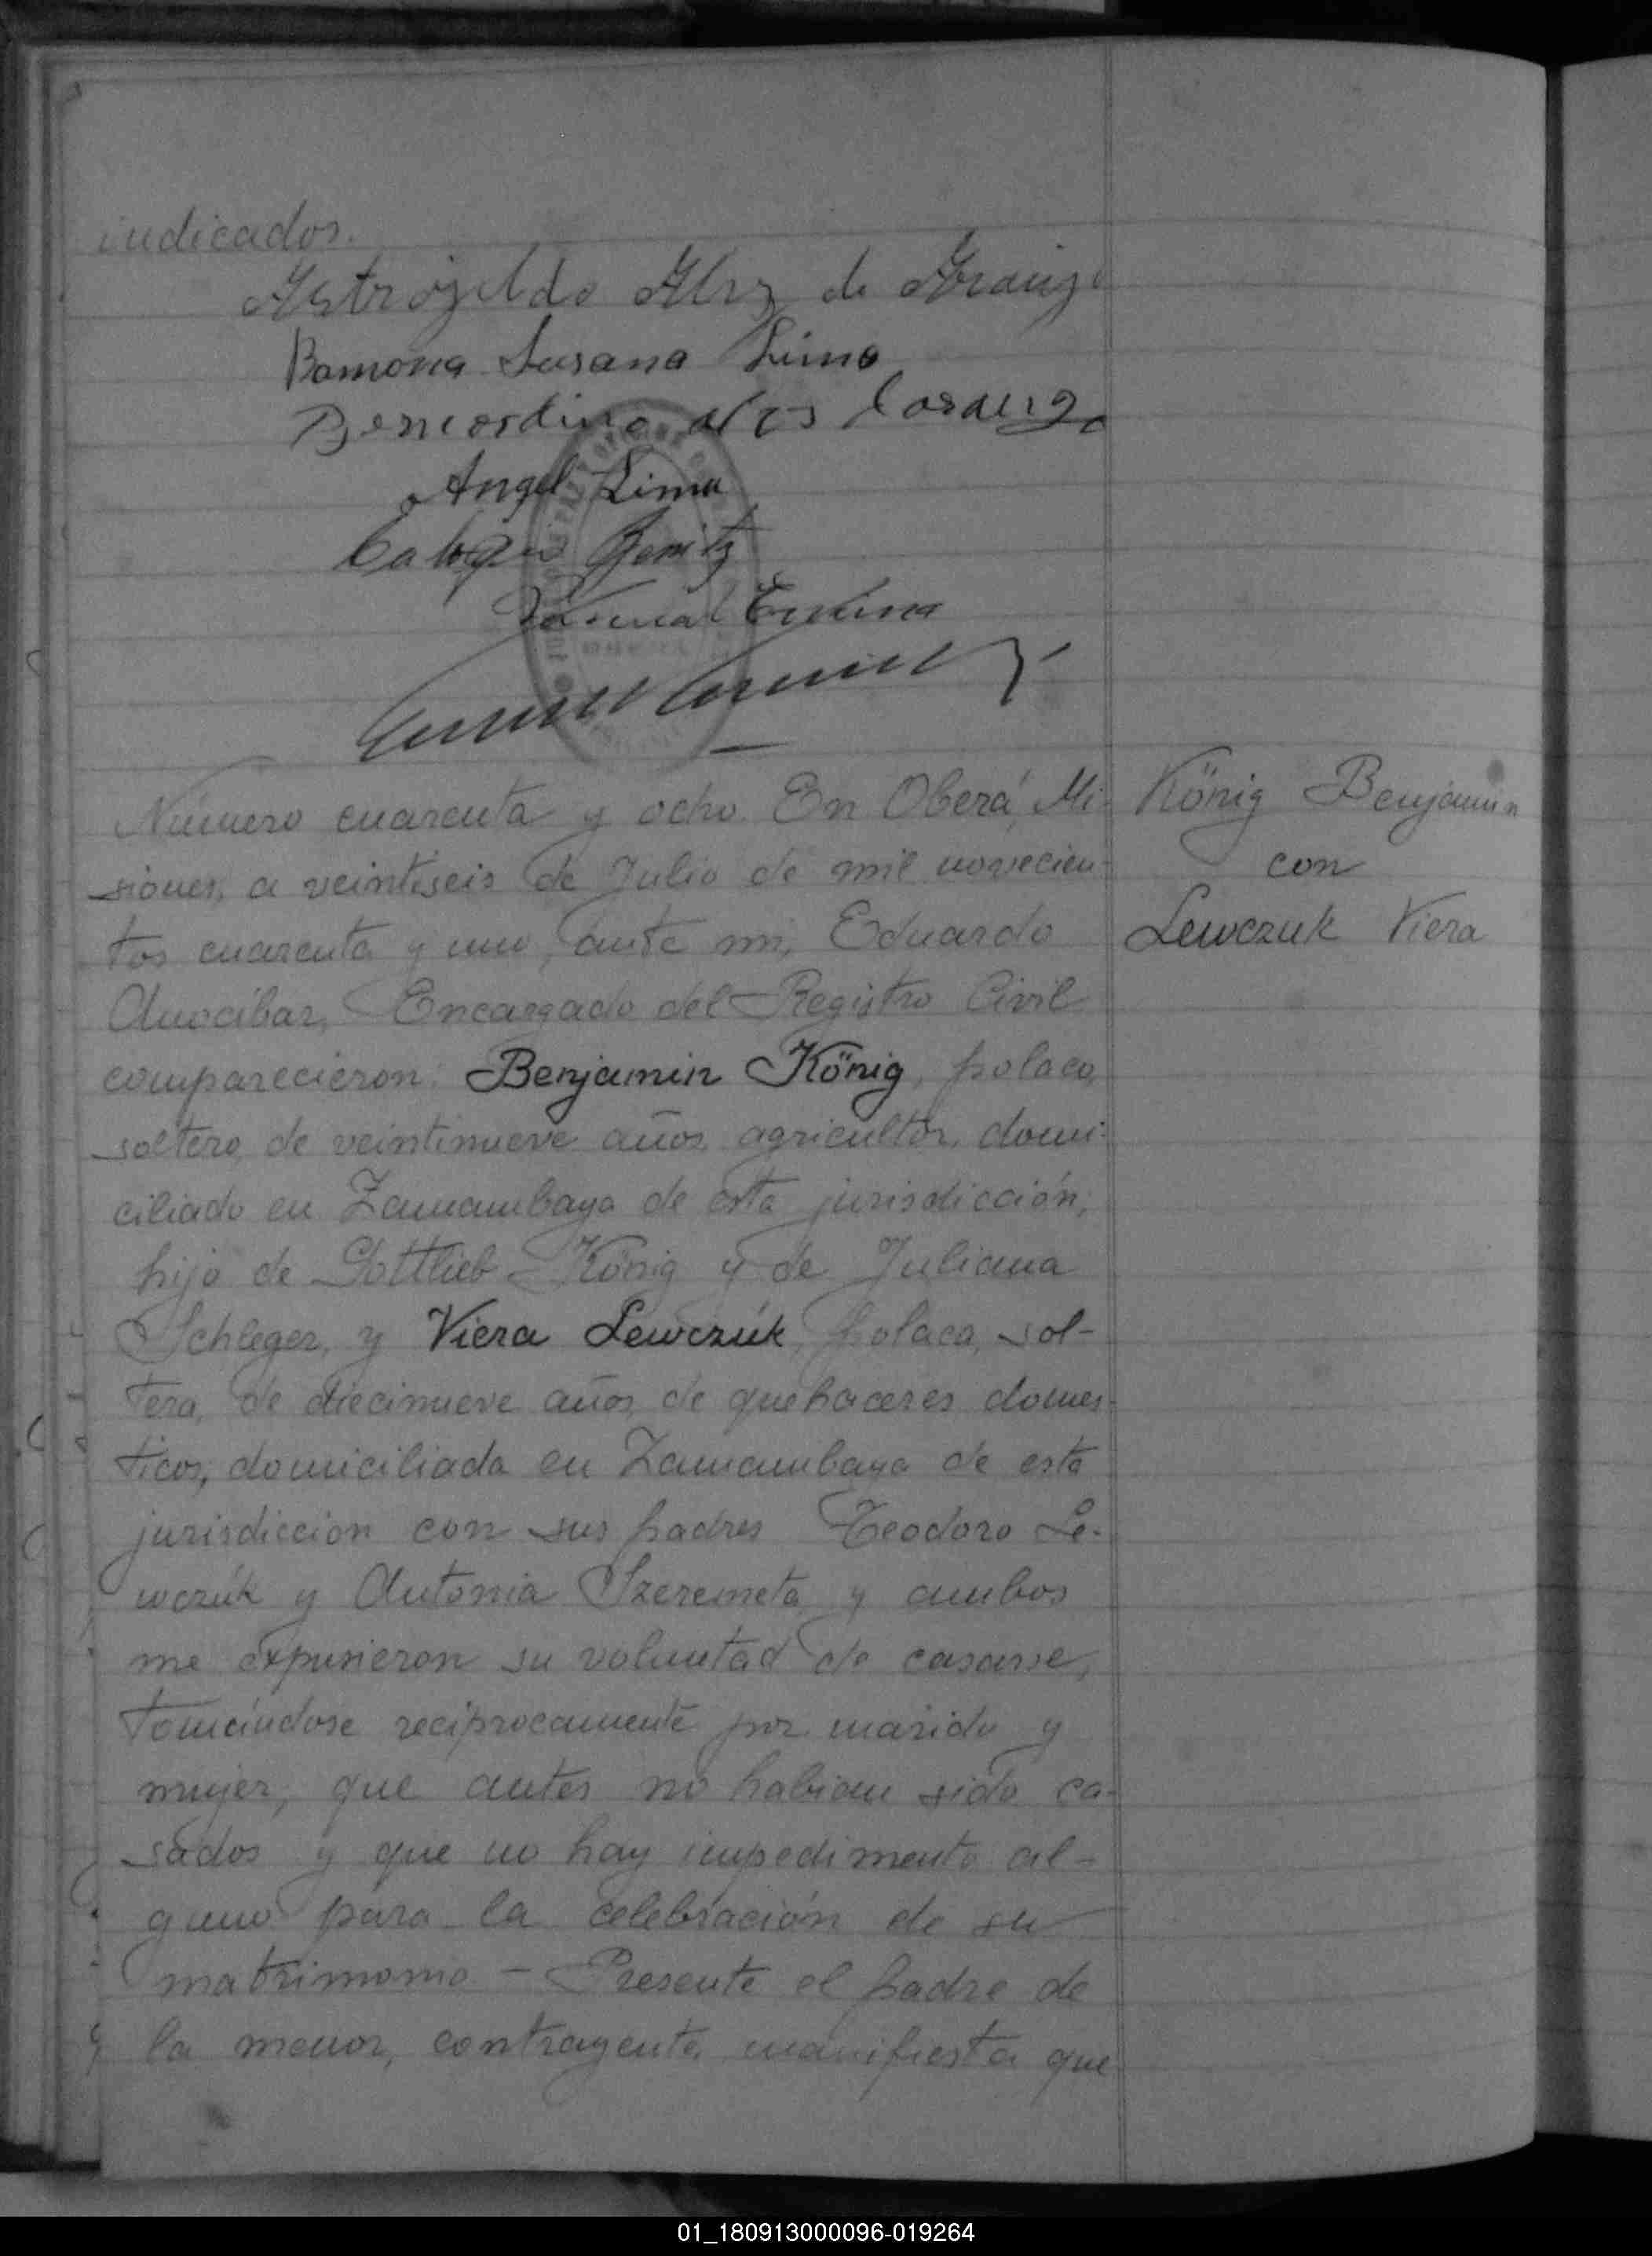 indicados.
Ramona Susana Lima
Angel Lima
Número cuarenta y ocho. En Oberá, Mi-
siones, a veintiseis de Julio de mil novecien-
tos cuarenta y uno, ante mi, Eduardo
Encargado del Registro Civil
comparecieron: Benjamin König, polaco,
soltero, de veintinueve años, agricultor, domi-
ciliado en Zamambaya de esta jurisdicción,
hijo de Gottlieb König y de Juliana
Schleger, y Viera Lewczúk, polaca, sol-
tera, de diecinueve años, de quehaceres domes-
ticos, domiciliada en Zamambaya de esta
jurisdiccion con sus padres Teodoro Le-
wczúk y Antonia Szeremeta y ambos
me expusieron su voluntad de casarse,
tomándose reciprocamente por marido y
mujer, que antes no habian sido ca-
sados y que no hay impedimento al-
guno para la celebración de su
matrimonio - Presente el padre de
la menor, contrayente, manifiesta que
König Benjamin
con
Lewczuk Viera
01_180913000096-019264